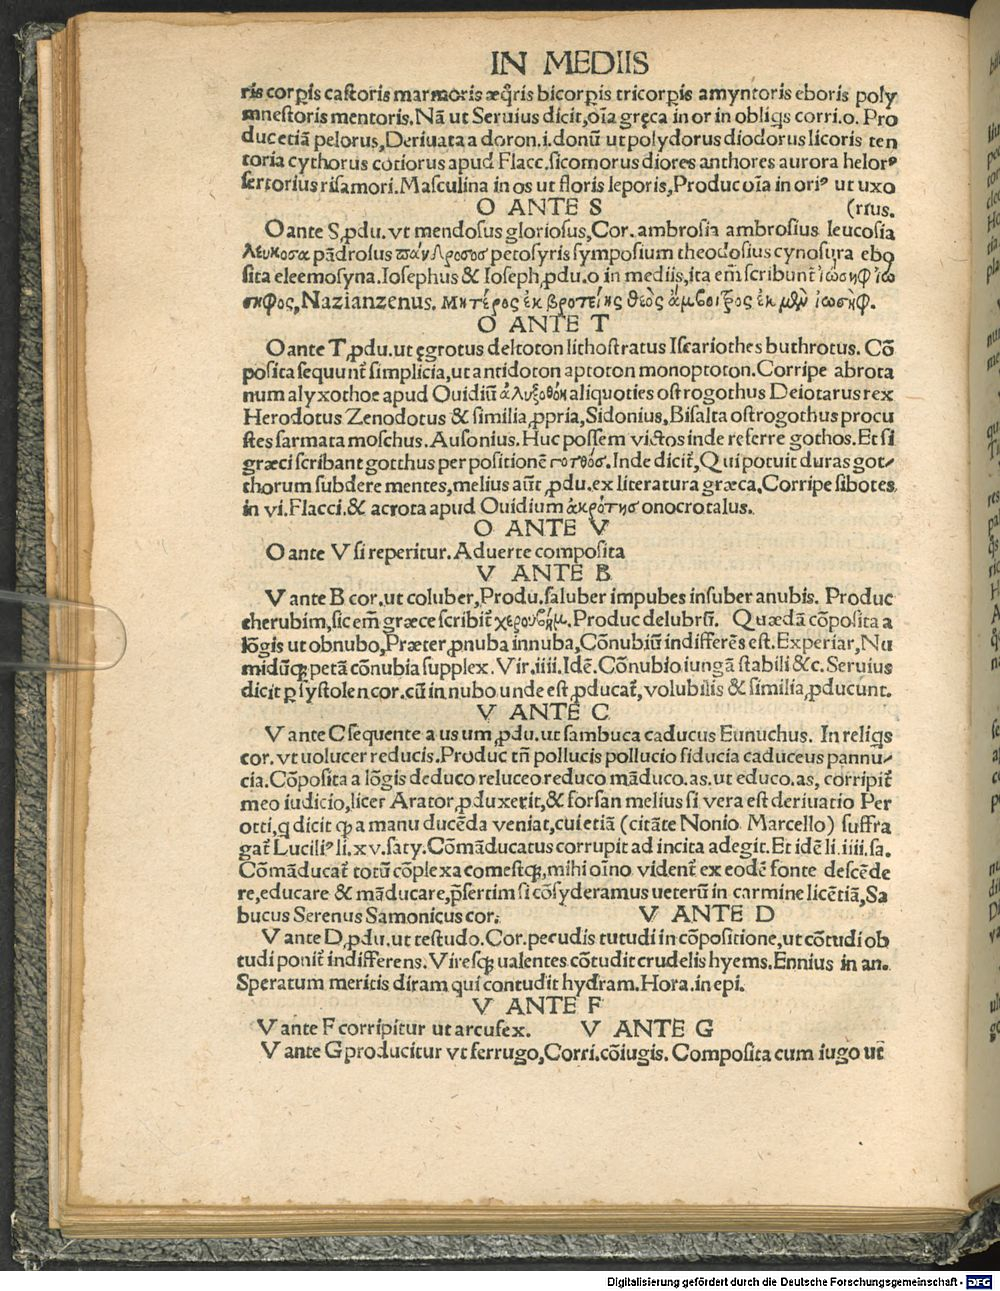 IN MEDIIS
ris corꝑis castoris marmoris æq̃ris bicorꝑis tricorꝑis amyntoris eboris poly
mnestoris mentoris. Nã ut Seruius dicit, oĩa gręca in or in obliqs corri. o. Pro
duc etiã pelorus, Deriuata a doron .i. donũ ut polydorus diodorus licoris ten
toria cythorus cotiorus apud Flacc. sicomorus diores anthores aurora helorꝰ
sertorius risamori. Masculina in os ut floris leporis, Produc oĩa in oriꝰ ut uxo
O ANTE S (rius.
O ante S, ꝓdu. vt mendosus gloriosus, Cor. ambrosia ambrosius leucosia
λευκοσα pãdrosus πανδροσοσ petosyris symposium theodosius cynosura ebo
sita eleemosyna. Iosephus & Ioseph, ꝓdu. o in mediis, ita em̃ scribunt̃ ἰώσηφ ἰω
σηφος, Nazianzenus. μητέρος ἐκ βροτείης θεὸς ἄμβοιξος ἐκ μὴν ἰωσὴφ.
O ANTE T
O ante T, ꝓdu. ut ęgrotus deltoton lithostratus Iscariothes buthrotus. Cõ
posita sequunt̃ simplicia, ut antidoton aptoton monoptoton. Corripe abrota
num alyxothoe apud Ouidiũ ἀλυξοθόη aliquoties ostrogothus Deiotarus rex
Herodotus Zenodotus & similia, ꝓpria, Sidonius, Bisalta ostrogothus procu
stes sarmata moschus. Ausonius. Huc possem victos inde referre gothos. Et si
græci scribant gotthus per positionẽ γοτθόσ. Inde dicit̃, Qui potuit duras got-
thorum subdere mentes, melius aũt, ꝓdu. ex literatura græca. Corripe sibotes
in vi. Flacci. & acrota apud Ouidium ἀκρότησ onocrotalus.
O ANTE V
O ante V si reperitur. Aduerte composita
V ANTE B
V ante B cor. ut coluber, Produ. saluber impubes insuber anubis. Produc
cherubim, sic em̃ græce scribit̃ χερουβήμ. Produc delubrũ. Quædã cõposita a
lõgis ut obnubo, Præter ꝓnuba innuba, Cõnubiũ indifferẽs est. Experiar, Nu
midũq; petã cõnubia supplex. Vir. iiii. Idẽ. Cõnubio iungã stabili &c. Seruius
dicit ꝑ systolen cor. cũ in nubo unde est, ꝓducat̃, volubilis & similia, ꝓducunt.
V ANTE C
V ante C sequente a us um, ꝓdu. ut sambuca caducus Eunuchus. In reliqs
cor. vt uolucer reducis. Produc tñ pollucis pollucio fiducia caduceus pannu-
cia. Cõposita a lõgis deduco reluceo reduco mãduco .as. ut educo .as, corripit̃
meo iudicio, licet Arator, ꝓduxerit, & forsan melius si vera est deriuatio Per
otti, q dicit ꝙ a manu ducẽda veniat, cui etiã (citãte Nonio Marcello) suffra
gat̃ Luciliꝰ li. xv. saty. Cõmãducatus corrupit ad incita adegit. Et idẽ li. iiii. sa.
Cõmãducat̃ totũ cõplexa comestq;, mihi oĩno vident̃ ex eodẽ fonte descẽde
re, educare & mãducare, p̃sertim si cõsyderamus ueterũ in carmine licẽtiã, Sa
bucus Serenus Samonicus cor. V ANTE D
V ante D, ꝓdu. ut testudo. Cor. pecudis tutudi in cõpositione, ut cõtudi ob
tudi ponit̃ indifferens. Viresq; ualentes cõtudit crudelis hyems. Ennius in an.
Speratum meritis diram qui contudit hydram. Hora. in epi.
V ANTE F
V ante F corripitur ut arcufex. V ANTE G
V ante G producitur vt ferrugo, Corri. cõiugis. Composita cum iugo ut
Digitalisierung gefördert durch die Deutsche Forschungsgemeinschaft - DFG